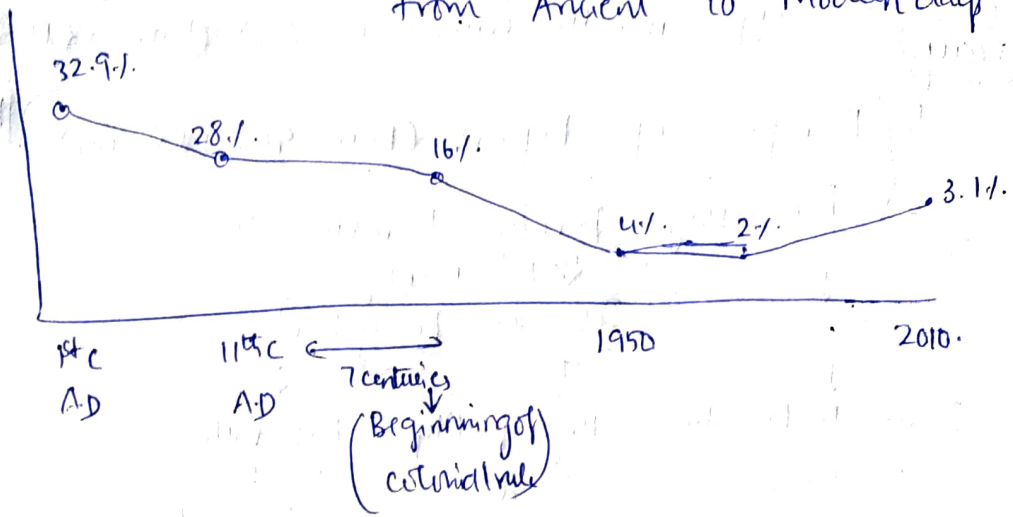 from Ancient to Modern day
32.9%.
28%.
16%.
4%.
2%.
3.1%.
1st C
AD
11th C
A.D
7 centuries
1950
2010.
(Beginning of
colonial rule)